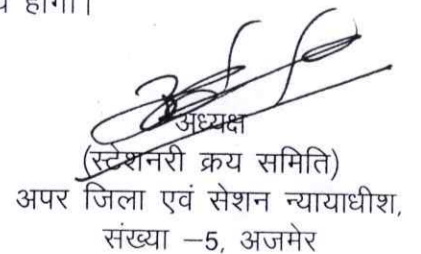 होगा।
अध्यक्ष
(स्टेशनरी क्रय समिति)
अपर जिला एवं सेशन न्यायाधीश,
संख्या –5, अजमेर